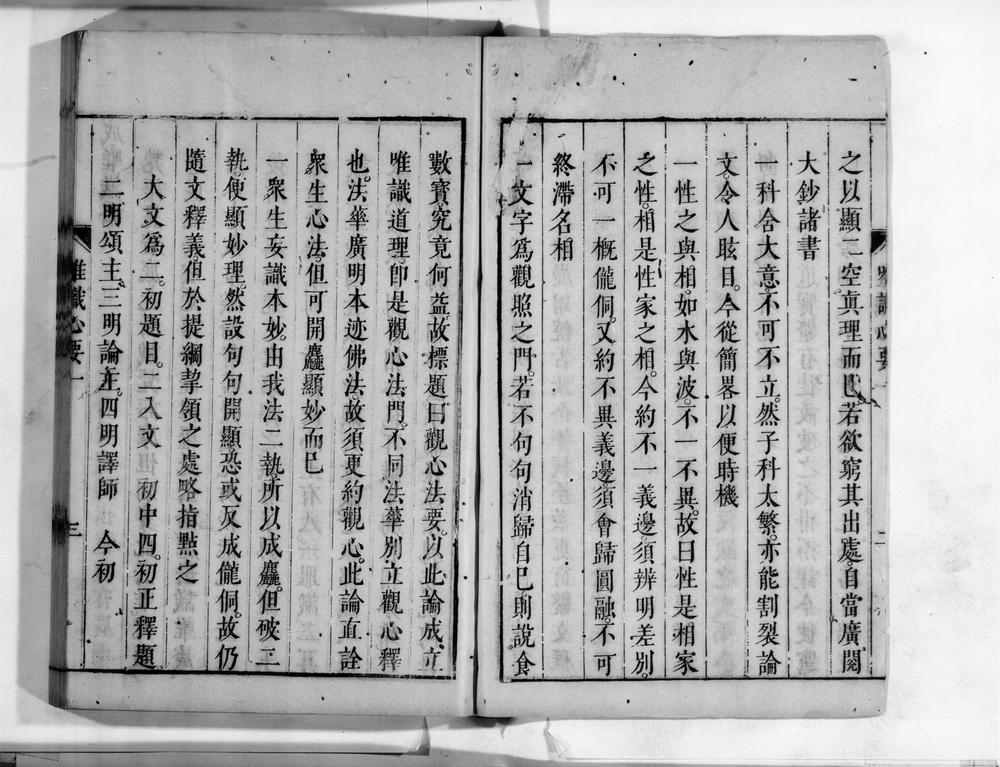 之以顯二空眞理而已若欲窮其出處。自當廣閱
大鈔諸書
一科含大意。不可不立。然子科太繁。亦能割裂論
文。令人眩目。今從簡畧以便時機
一性之與相。如水與波。不一不異。故曰性是相家
之性。相是性家之相。今約不一義邊。須辨明差別。
不可一概儱侗。又約不異義邊。須會歸圓融。不可
終滯名相
一文字爲觀照之門。若不句句消歸自已。則說食
二
數寶。究竟何益。故標題曰觀心法要。以此論成立
唯識道理。卽是觀心法門。不同法華別立觀心釋
也。法華廣明本迹佛法。故須更約觀心。此論直詮
衆生心法。但可開麤顯妙而已
一衆生妄識本妙。由我法二執。所以成麤。但破二
執。便顯妙理。然設句句開顯。恐或反成儱侗。故仍
隨文釋義。但於提綱挈領之處略指點之
大文爲二。初題目。二入文。但初中四。初正釋題。
二明頌主。三明論主。四明譯師　今初
唯識心要一
三